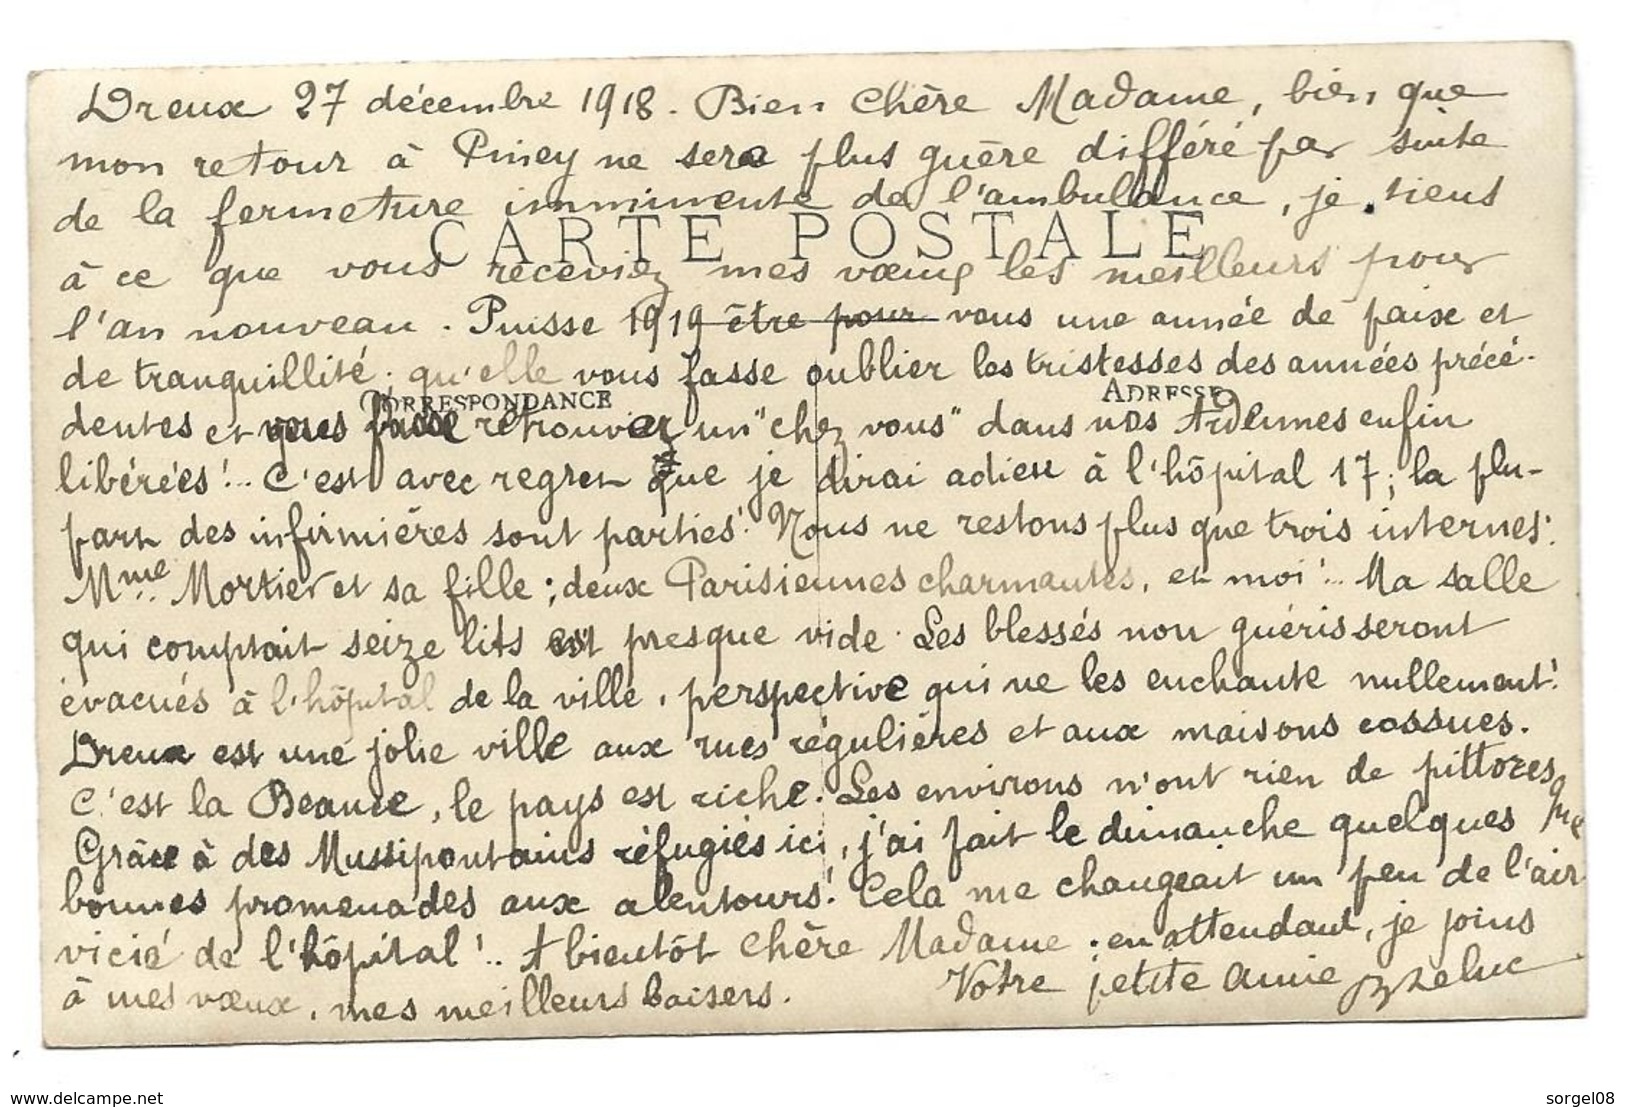 Dreux 27 décembre 1918. Bien chère Madame, bien que
mon retour à Piney ne sera plus guère différé par suite
de la fermeture imminente de l'ambulance, je tiens
CARTE POSTALE
à ce que vous receviez mes vœux les meilleurs pour
l'an nouveau. Puisse 1919 être pour vous une année de paix et
de tranquillité; qu'elle vous fasse oublier les tristesses des années précé-
CORRESPONDANCE
ADRESSE
dentes et vous fasse retrouver un "chez vous" dans nos Ardennes enfin
libérées!.. C'est avec regret que je dirai adieu à l'hôpital 17; la plu-
part des infirmières sont parties! Nous ne restons plus que trois internes:
Mme Mortier et sa fille; deux Parisiennes charmantes, et moi!.. Ma salle
qui comptait seize lits est presque vide. Les blessés non guéris seront
évacués à l'hôpital de la ville, perspective qui ne les enchante nullement!
Dreux est une jolie ville aux rues régulières et aux maisons cossues.
C'est la Beauce, le pays est riche. Les environs n'ont rien de pittoresque
Grâce à des Mussipontains réfugiés ici, j'ai fait le dimanche quelques
bonnes promenades aux alentours! Cela me changeait un peu de l'air
vicié de l'hôpital!.. A bientôt chère Madame; en attendant, je joins
à mes vœux, mes meilleurs baisers. Votre petite amie
www.delcampe.net
sorgel08